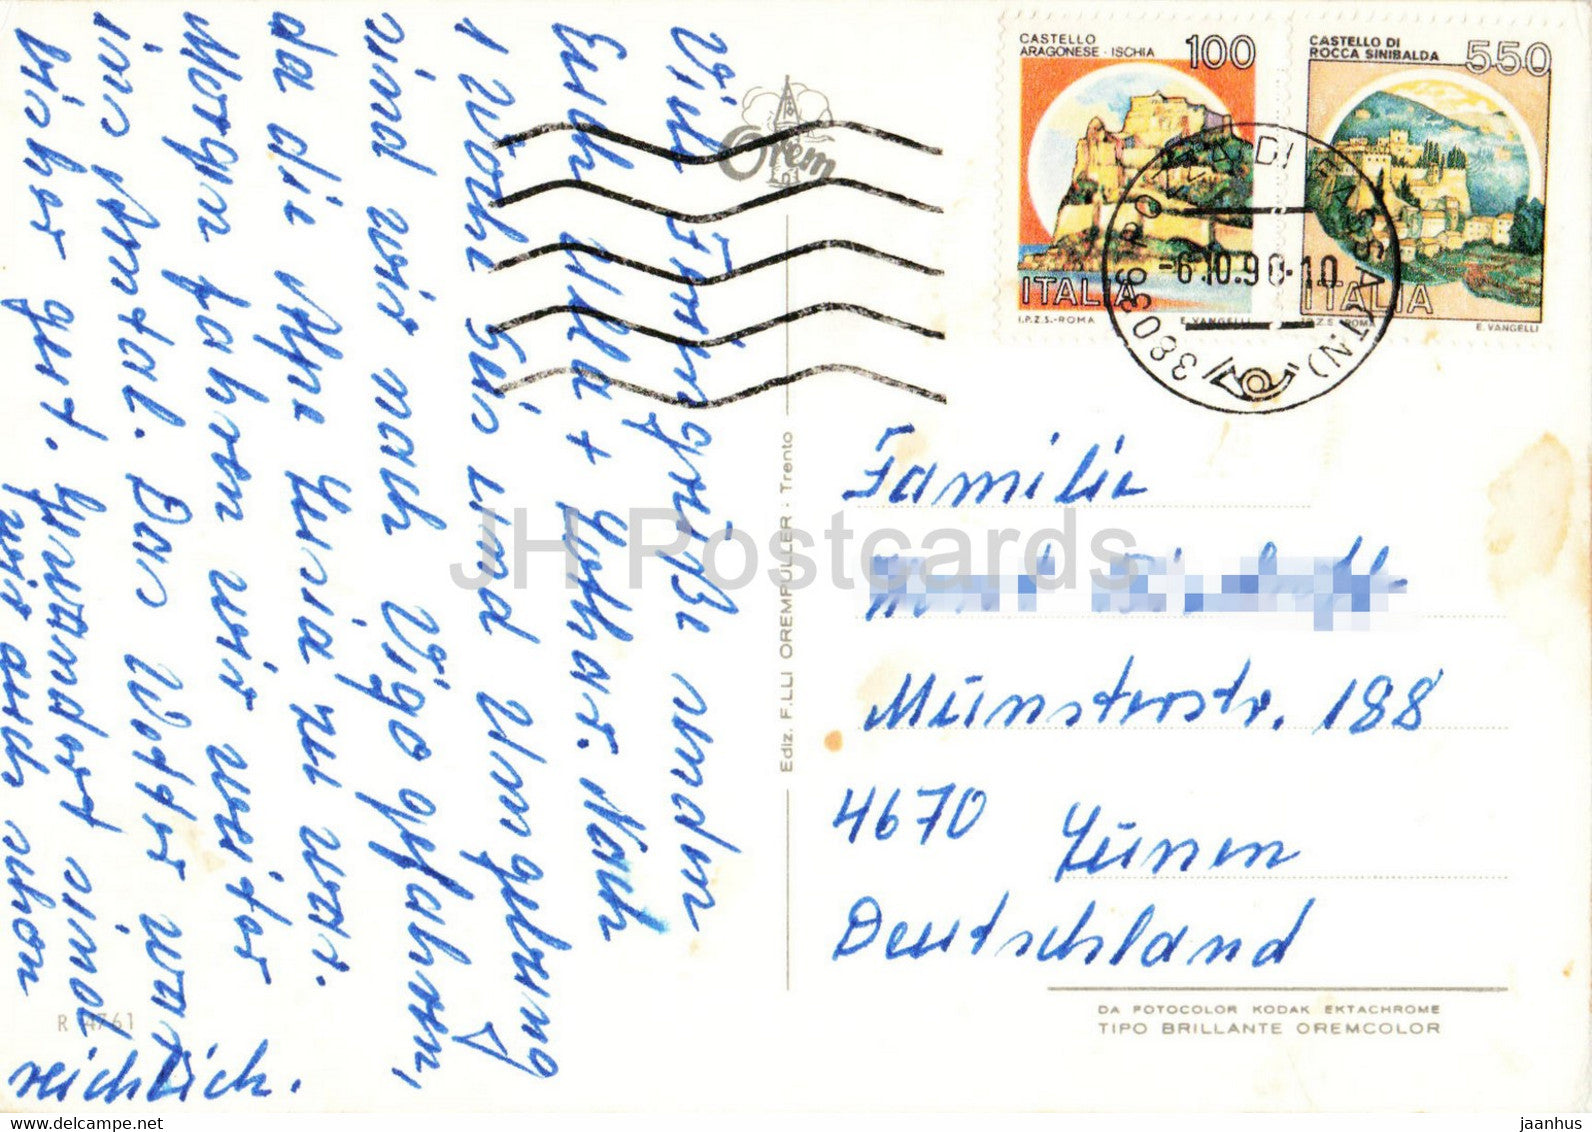 CASTELLO
ARAGONESE - ISCHIA
100
ITALIA
I.P.Z.S.-ROMA E. VANGELLI
CASTELLO DI
ROCCA SINIBALDA
550
ITALIA
I.P.Z.S. - ROMA E. VANGELLI
38036 POZZA DI FASSA (TN)
-6.10.90-10
Orem
Viele Feriengrüße senden
Euch Ulla + Lothar. Nach
1 Woche Süd und Umgebung
sind wir nach Vigo gefahren,
da die Alpe Lusia zu war.
Morgen fahren wir weiter
ins Ahrntal. Das Wetter war
bisher gut. Gewandert sind
wir auch schon
reichlich.
R 4761
Ediz. F.LLI OREMPULLER - Trento
JH Postcards
Familie
Münsterstr. 188
4670 Lünen
Deutschland
DA FOTOCOLOR KODAK EKTACHROME
TIPO BRILLANTE OREMCOLOR
jaanhus